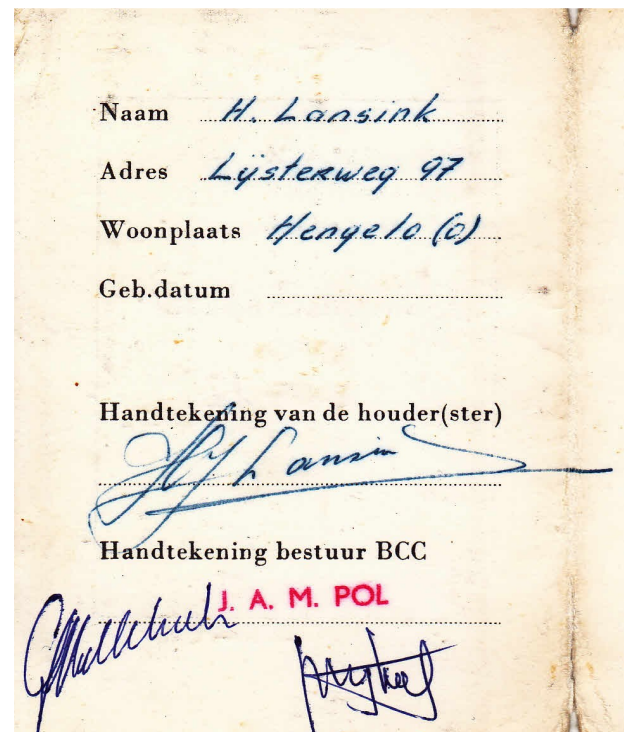 Naam H. Lansink
Adres Lijsterweg 97
Woonplaats Hengelo (O)
Geb.datum
Handtekening van de houder(ster)
Lansink
Handtekening bestuur BCC
J. A. M. POL